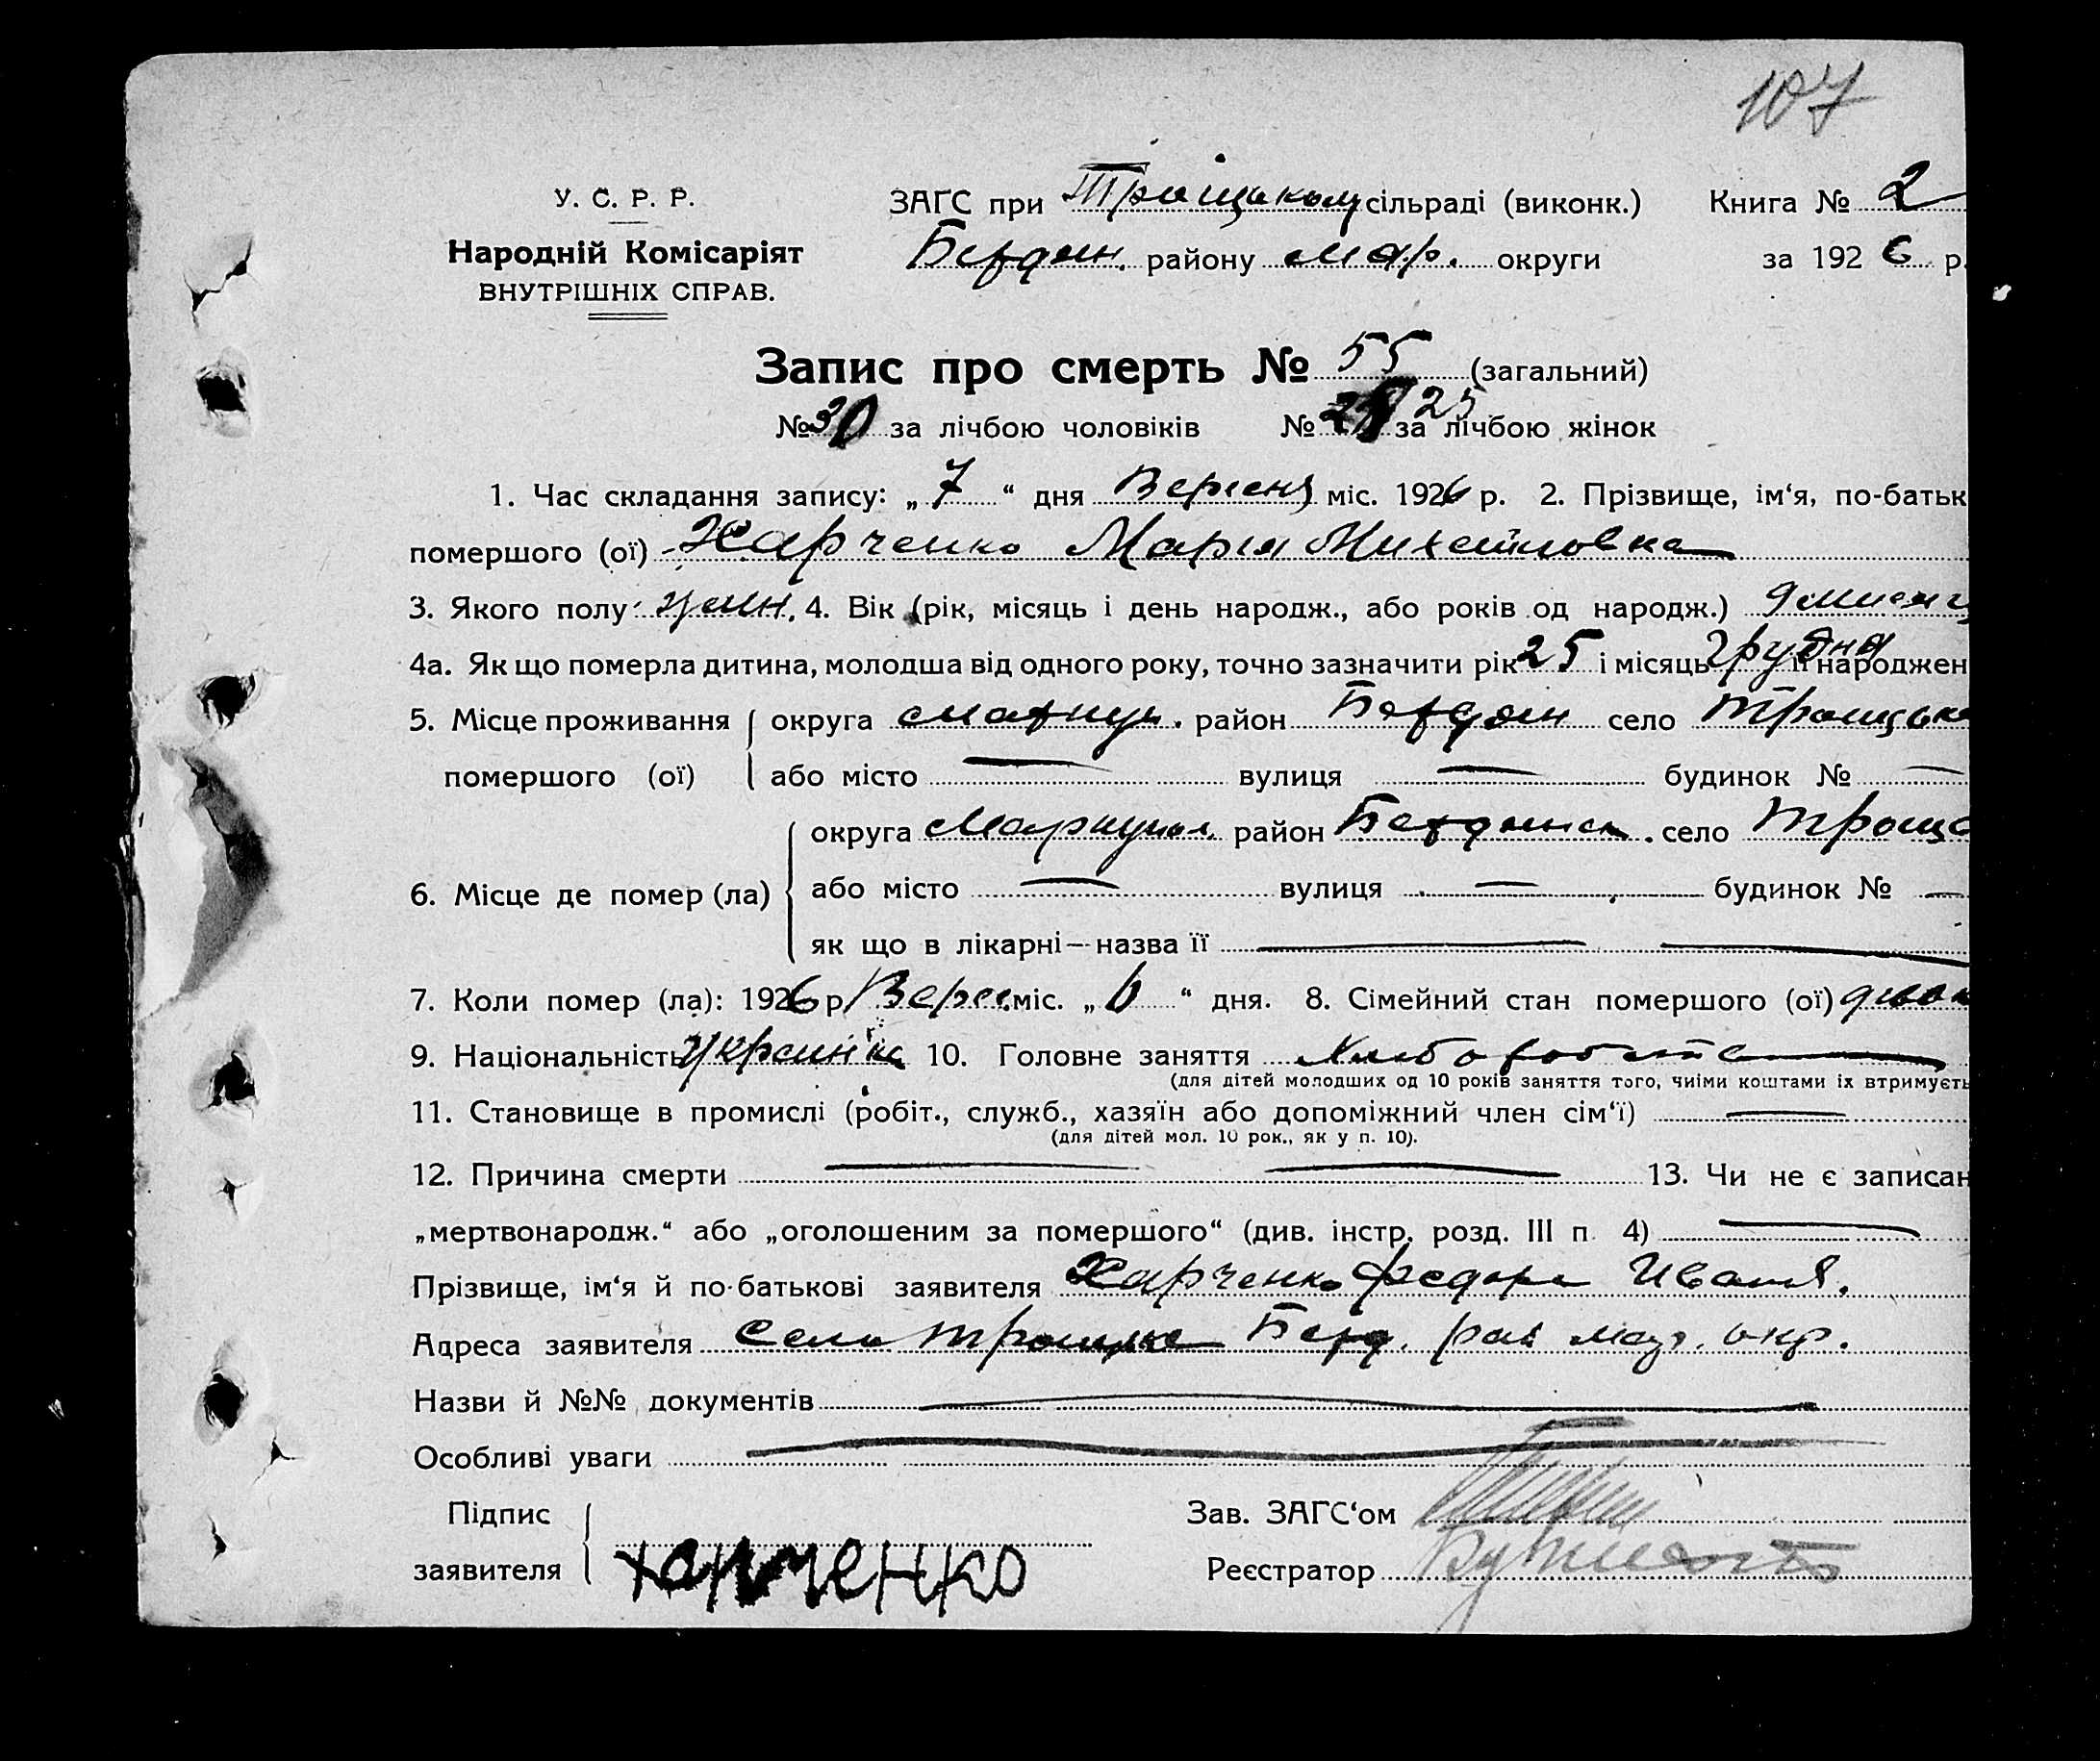 107
У. С. Р. Р. ЗАГС при Троіцькому сільраді (виконк.) Книга № 2
Народній Комісаріят Бердян. району Мар. округи за 1926 р.
ВНУТРІШНІХ СПРАВ.
Запис про смерть № 55 (загальний)
№ 30 за лічбою чоловіків № 25 за лічбою жінок
1. Час складання запису: „7“ дня Вересня міс. 1926 р. 2. Прізвище, ім‘я, по-батьк
помершого (ої) Харченко Мария Михайловна
3. Якого полу жін. 4. Вік (рік, місяць і день народж., або років од народж.) 9
4а. Як що померла дитина, молодша від одного року, точно зазначити рік 25 і місяць Грудня її народжен
5. Місце проживання округа Маріуп. район Бердян село Троицьке
помершого (ої) або місто — вулиця — будинок № —
округа Мариупол. район Бердянськ. село Троиц
6. Місце де помер (ла) або місто — вулиця — будинок № —
як що в лікарні—назва її —
7. Коли помер (ла): 1926 р. Верес. міс. „6“ дня. 8. Сімейний стан помершого (ої)
9. Національність Україн́ка 10. Головне заняття Хлібороботва
(для дітей молодших од 10 років заняття того, чиіми коштами іх втримуєть
11. Становище в промислі (робіт., служб., хазяїн або допоміжний член сім‘ї) —
(для дітей мол. 10 рок., як у п. 10).
12. Причина смерти — 13. Чи не є записан
„мертвонародж.“ або „оголошеним за помершого“ (див. інстр. розд. III п. 4) —
Прізвище, ім‘я й по-батькові заявителя Харченко Федора Иван.
Адреса заявителя Село Троицьке Берд. рай Мар. окр.
Назви й №№ документів —
Особливі уваги —
Підпис Зав. ЗАГС‘ом
заявителя Харченко Реєстратор